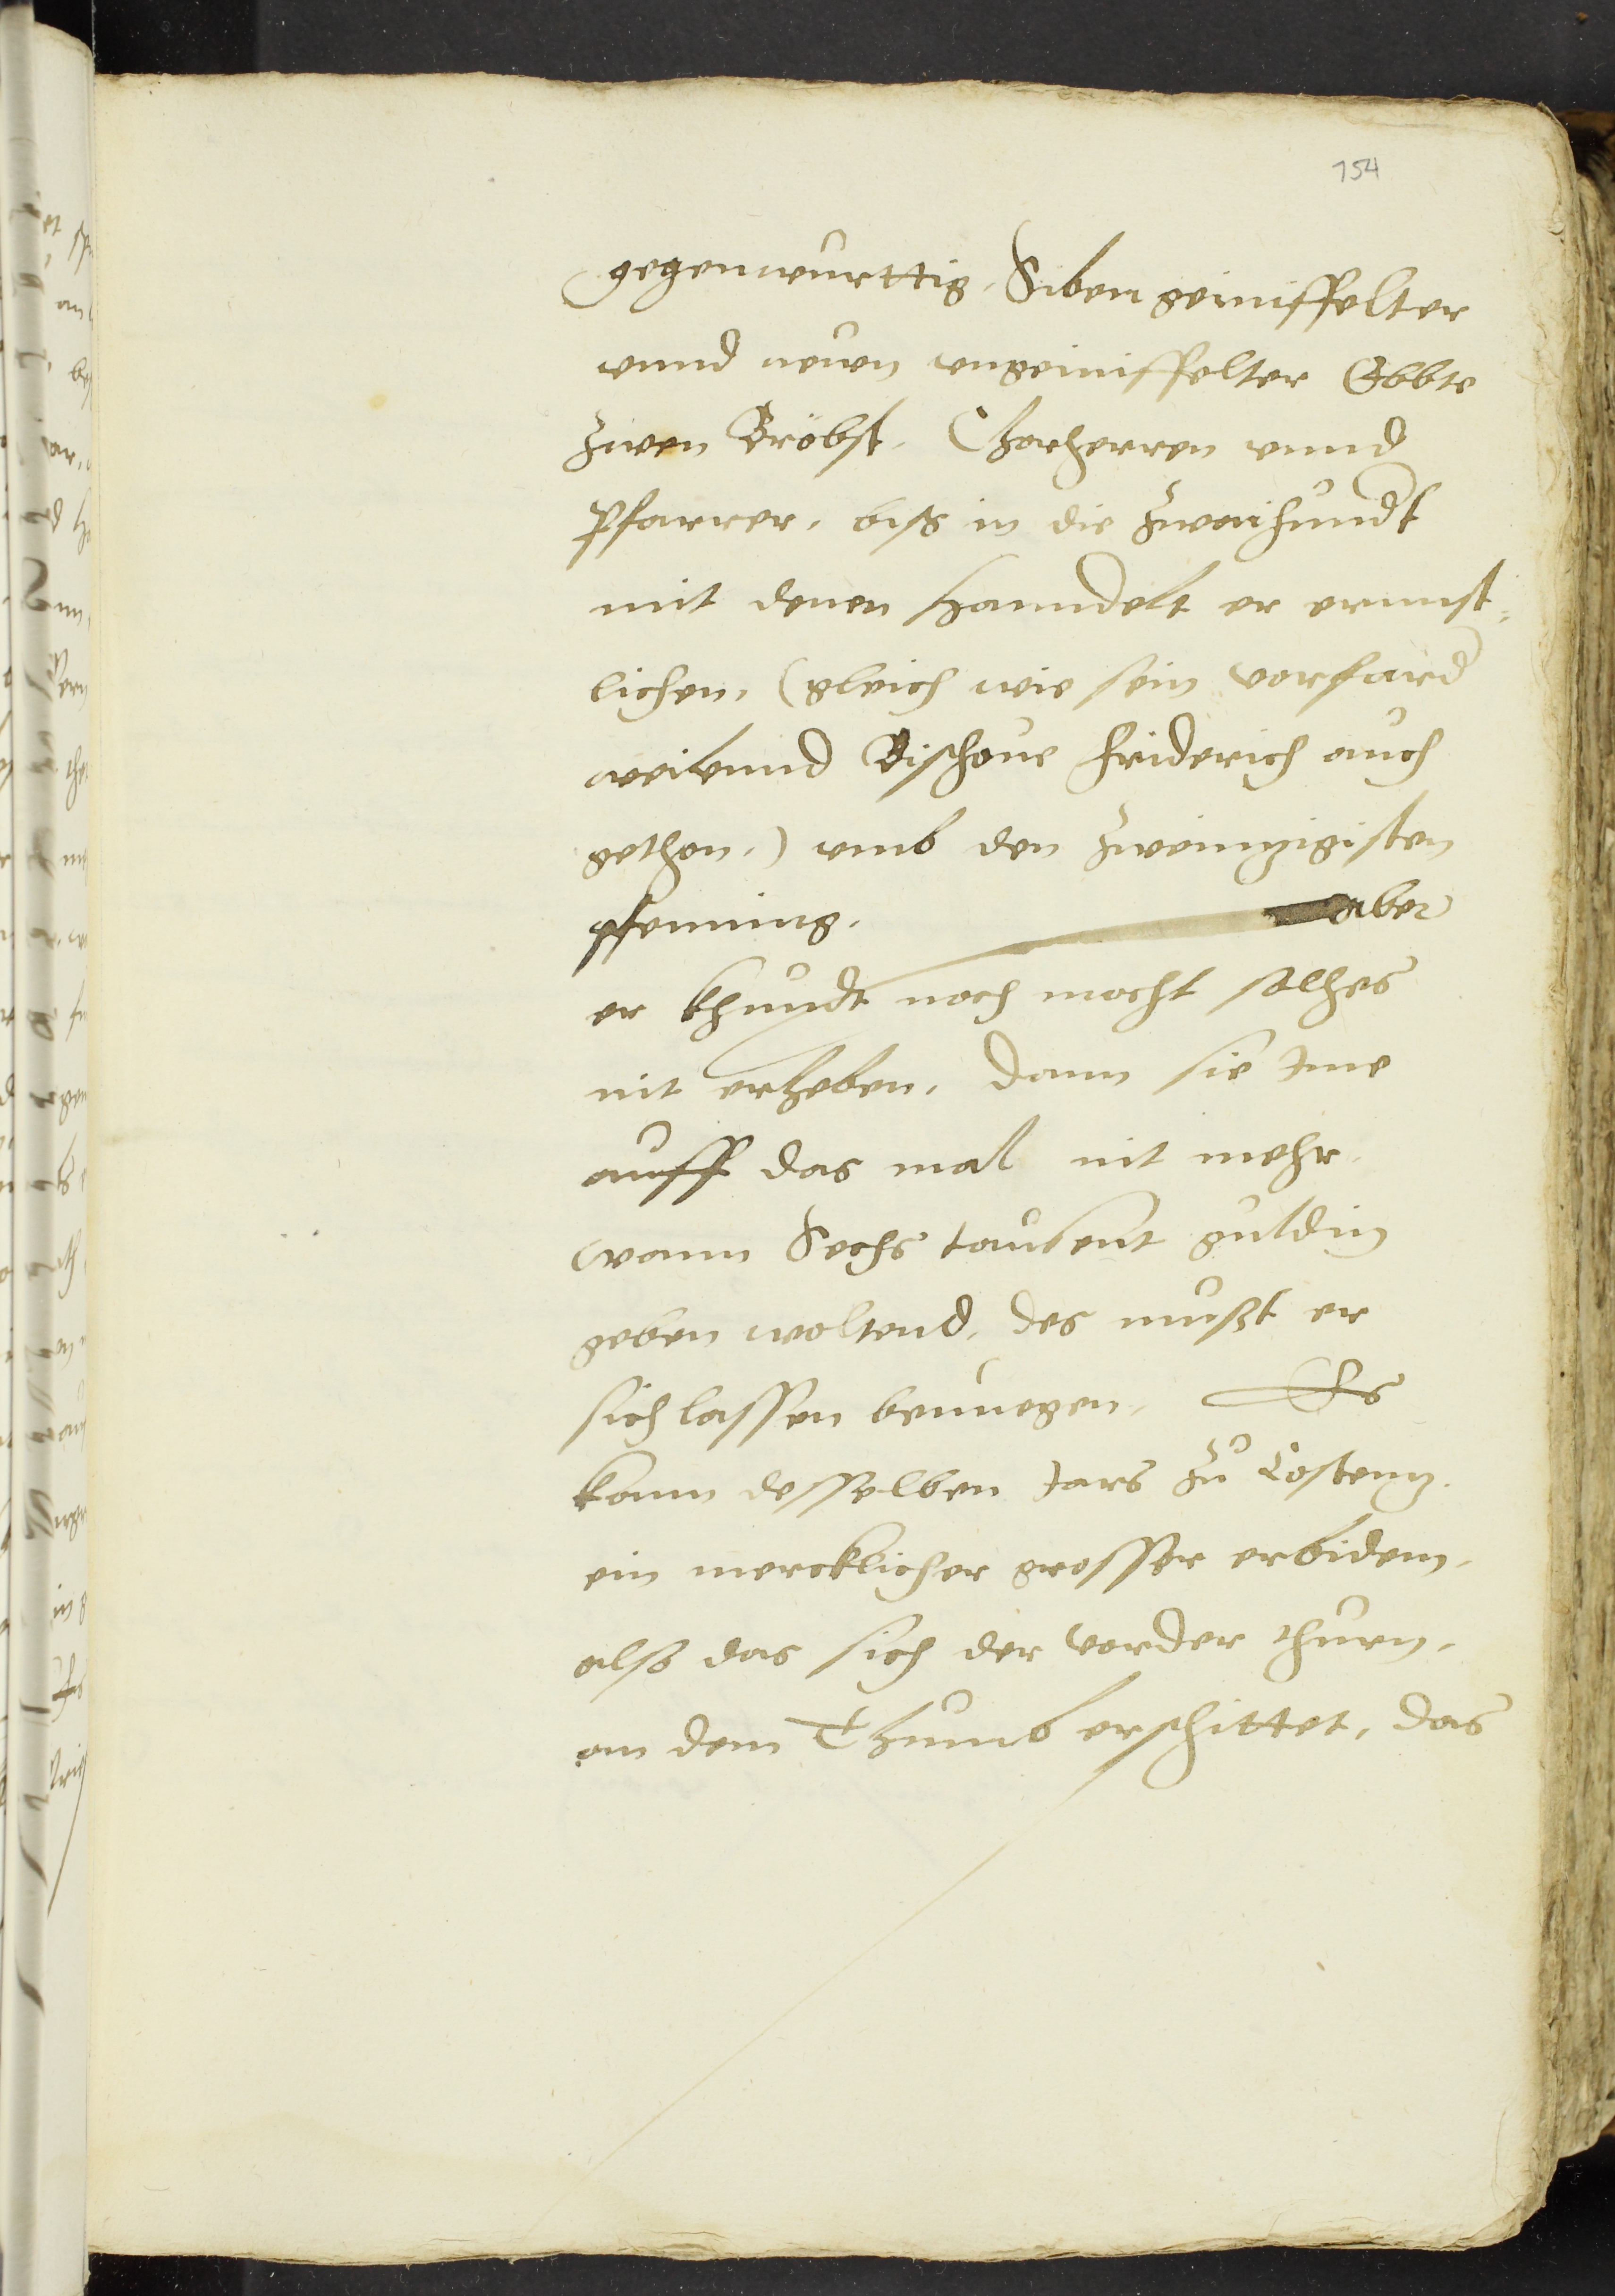 154
gegenwurttig, Siben geinffelter
vnnd neuen vngeinffelter Ebbte
zwen Bröbst, Chorherren vnnd
Pfarrer, biß in die zwaihundt
mit denen handelt er ernnst,
lichen, (gleich wie sein vorfard
weilennd Bischoue Friderich auch
gethon,) vmb den zweintzigisten
pfenning, aber
er khundt noch mocht solhes
nit erheben, dann sie Ime
auff das mal nit mehr,
wann Sechs tausent guldin
geben woltend, des mußt er
sich lassen benuegen, Es
kam desselben Jars zu Costentz
ein mercklicher grosser erbidem,
alß das sich der vorder thurn,
an dem Thumb erschittet, das